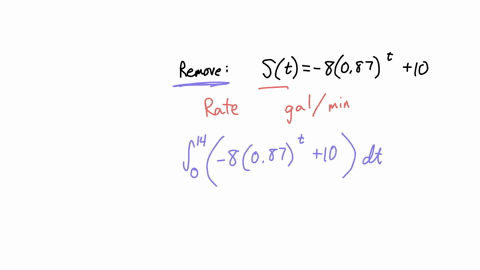 Remove: S(t) = -8(0.87)^t + 10
Rate gal/min
∫_0^14 (-8(0.87)^t + 10) dt